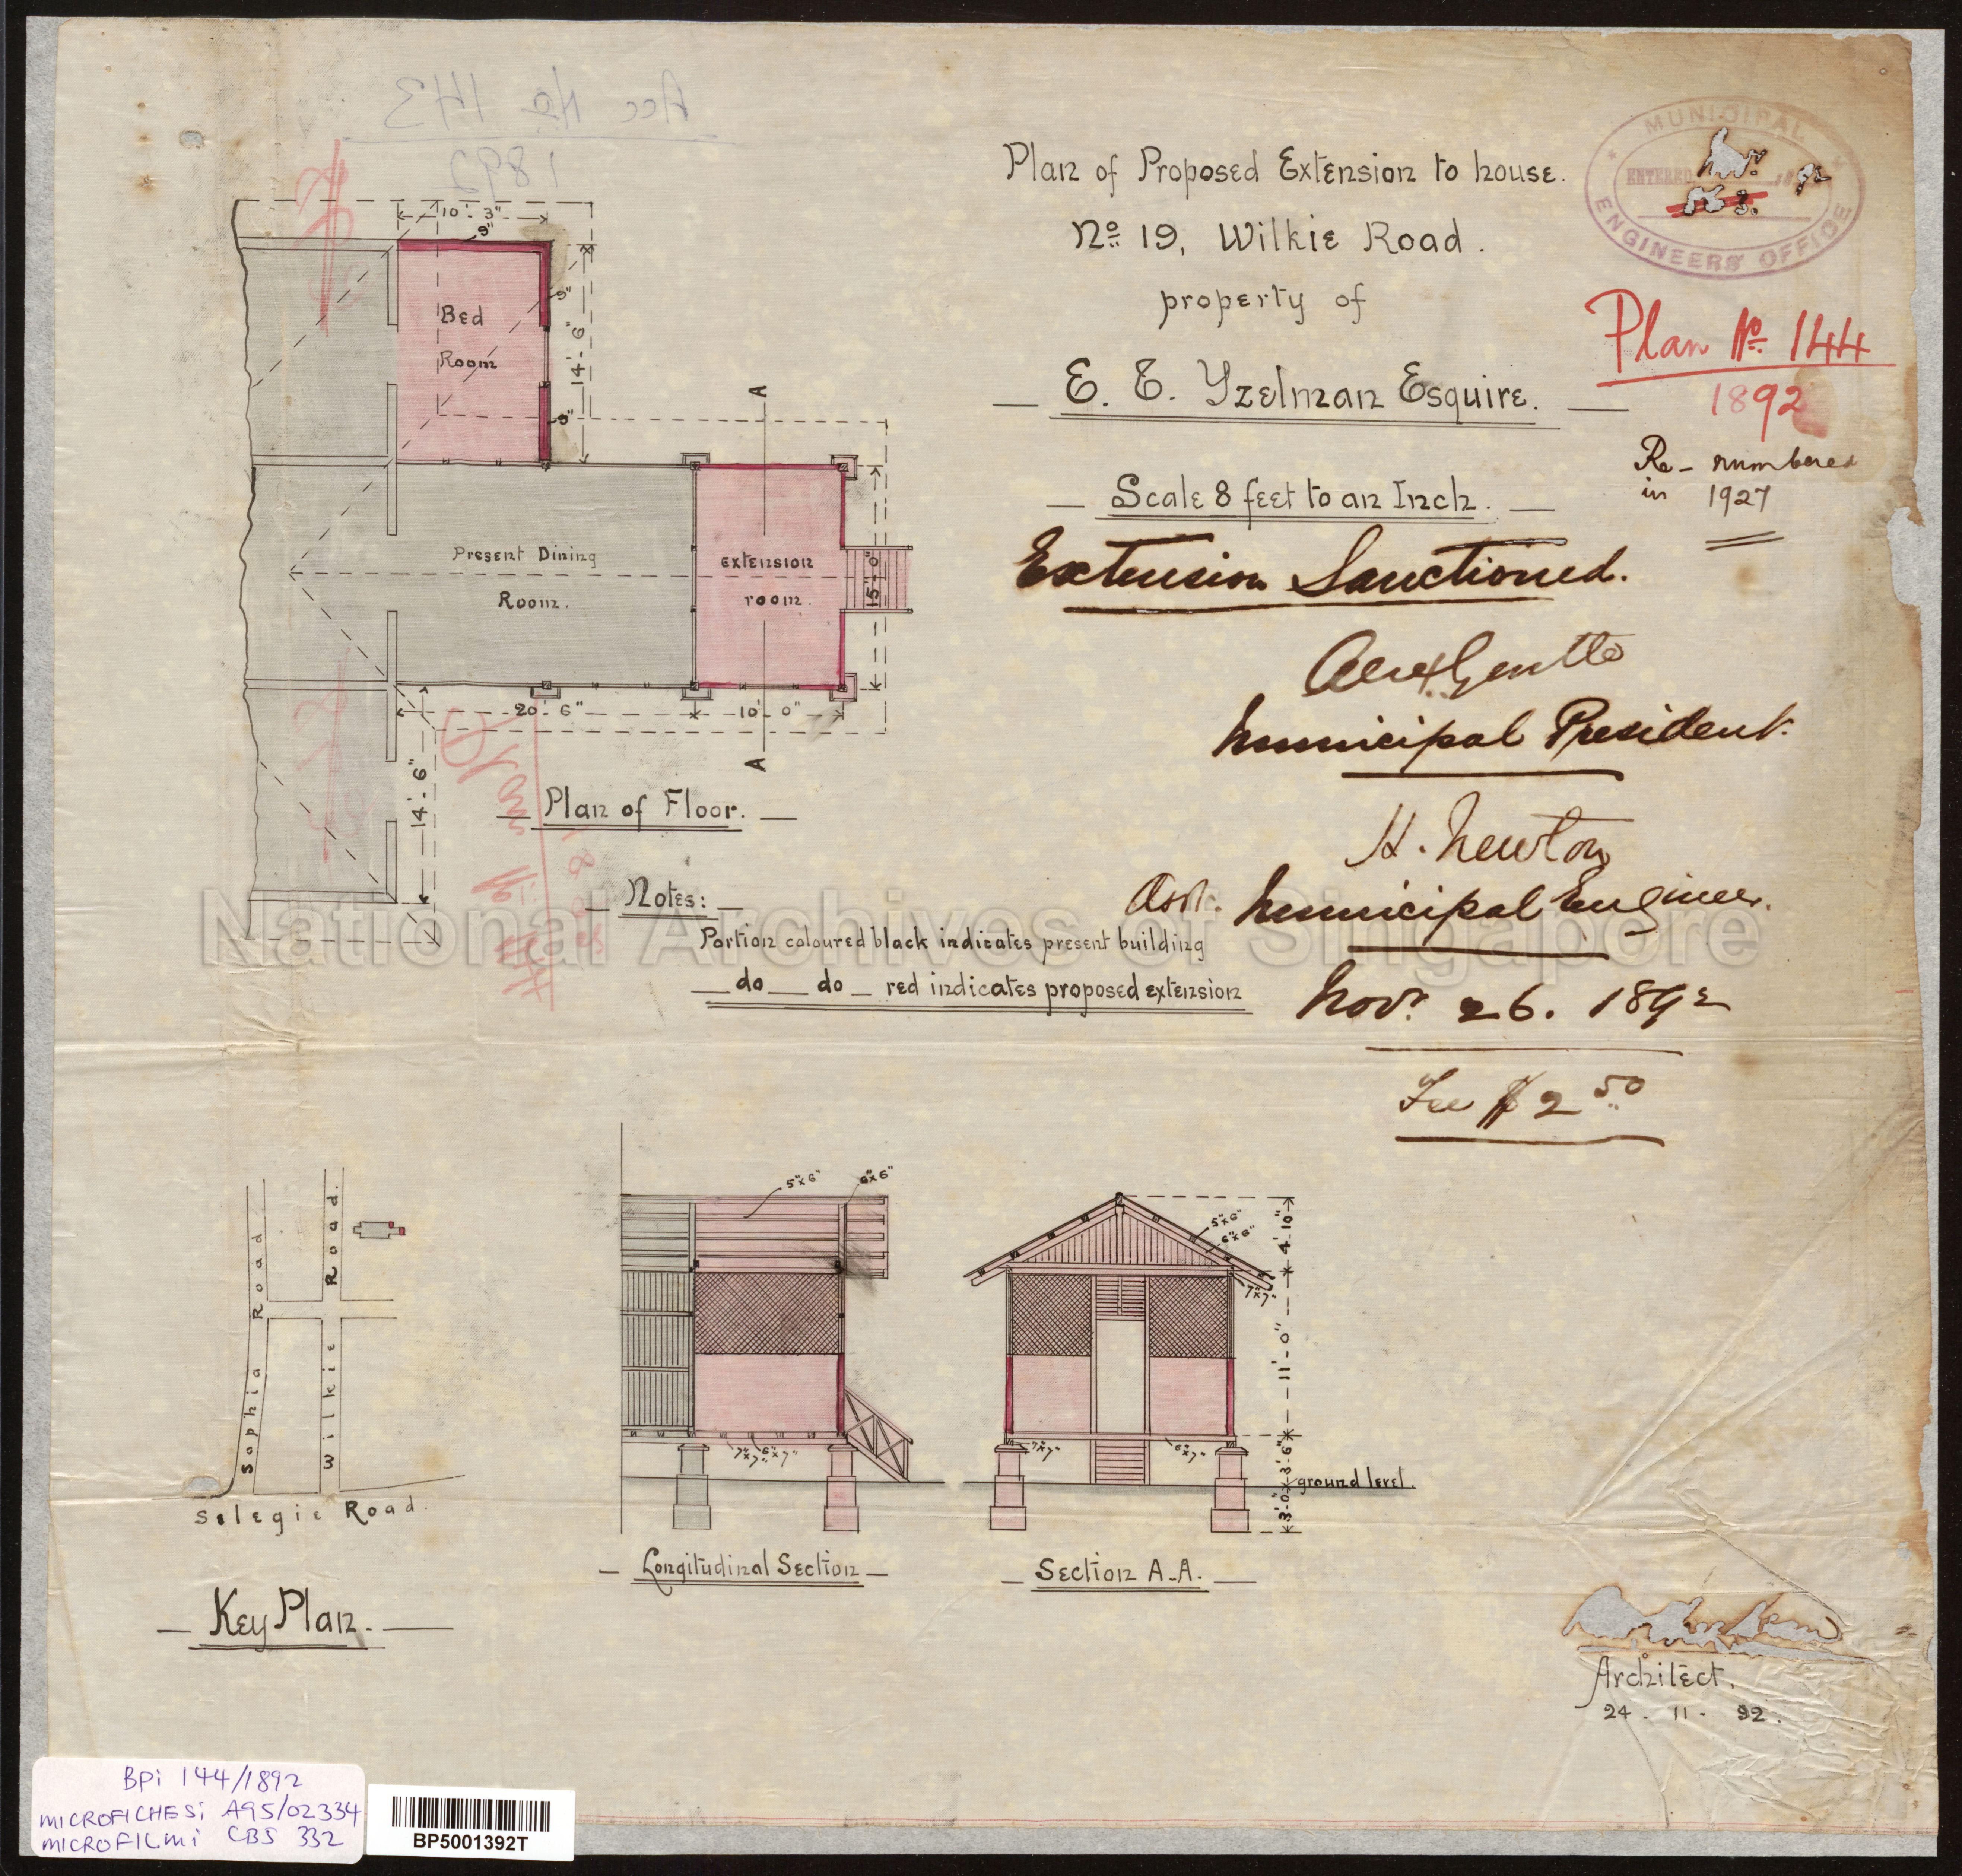 Acc No 143
1892
Plan of Proposed Extension to house.
No 19, Wilkie Road.
property of
E. E. Yzelman Esquire.
Scale 8 feet to an Inch.
MUNICIPAL
ENTERED Nov. 18 92
ENGINEERS' OFFICE
Plan No. 144
1892
Re-numbered
in 1927
Extension Sanctioned.
Alex Gentle
Municipal President.
H. Newton
Asst. Municipal Engineer.
Novr. 26. 1892
Fee $ 2 50
10'-3"
9"
Bed
Room
9"
14'-6"
9"
A
Present Dining
Room.
Extension
room.
15'-0"
20'-6"
10'-0"
A
14'-6"
Plan of Floor.
Notes:
Portion coloured black indicates present building
do do red indicates proposed extension
National Archives of Singapore
Sophia Road
Wilkie Road.
Selegie Road.
Key Plan.
5"x6"
6"x6"
7"x7"
6"x7"
Longitudinal Section
5"x6"
6"x6"
7"x7"
7"x7"
6"x7"
4'-10"
11'-0"
3'-6"
3'-0"
ground level.
Section A-A.
Architect.
24-11-92.
BPi 144/1892
MICROFICHESi A95/02334
MICROFILMi CBS 332
BP5001392T